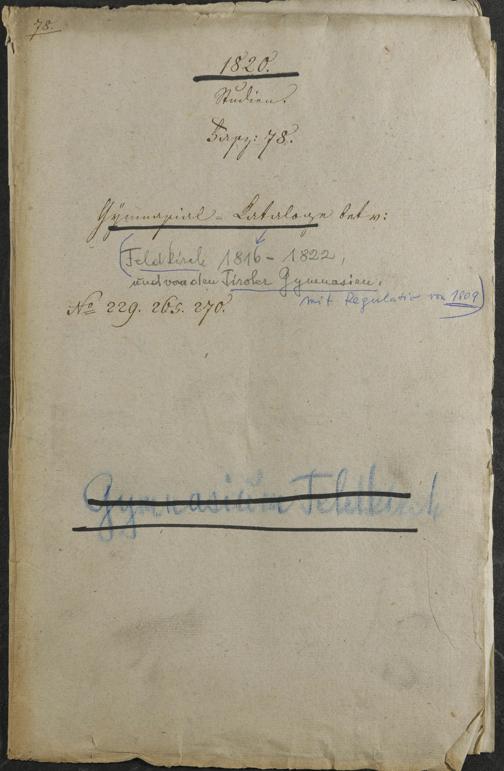 78.
1820.
Studien.
Fasz: 78.
Gymnasial-Cataloge betr:
(Feldkirch 1816-1822,
und von den Tiroler Gymnasien.
mit Regulativ von 1809)
No 229. 265. 270.
Gymnasium Feldkirch